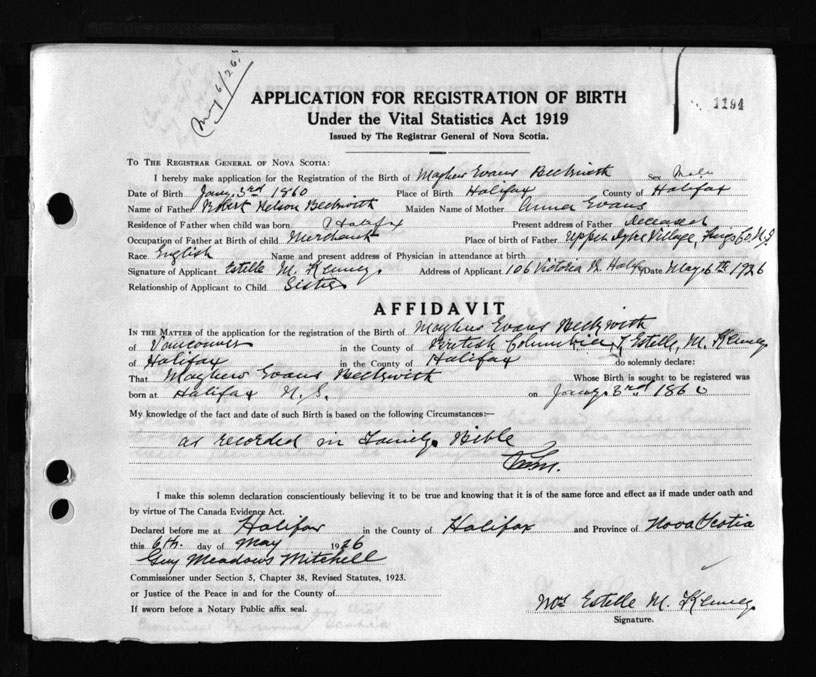 May 6/26.
1194
APPLICATION FOR REGISTRATION OF BIRTH
Under the Vital Statistics Act 1919
Issued by The Registrar General of Nova Scotia.
TO THE REGISTRAR GENERAL OF NOVA SCOTIA:
I hereby make application for the Registration of the Birth of Mayhew Evans Beckwith Sex Male
Date of Birth Jany. 3rd 1860 Place of Birth Halifax County of Halifax
Name of Father Robert Nelson Beckwith Maiden Name of Mother Anna Evans
Residence of Father when child was born. Halifax Present address of Father Deceased
Occupation of Father at Birth of child Merchant Place of birth of Father Upper Dyke Village, Kings Co. N.S.
Race English Name and present address of Physician in attendance at birth
Signature of Applicant Estelle M. Address of Applicant 106 Victoria Rd. Halfx Date May 6th 1926
Relationship of Applicant to Child Sister
AFFIDAVIT
IN THE MATTER of the application for the registration of the Birth of Mayhew Evans Beckwith
of Vancouver in the County of British Columbia I Estelle M.
of Halifax in the County of Halifax do solemnly declare:
That Mayhew Evans Beckwith Whose Birth is sought to be registered was
born at Halifax N.S. on Jany. 3rd 1860
My knowledge of the fact and date of such Birth is based on the following Circumstances:—
as recorded in Family Bible
I make this solemn declaration conscientiously believing it to be true and knowing that it is of the same force and effect as if made under oath and
by virtue of The Canada Evidence Act.
Declared before me at Halifax in the County of Halifax and Province of Nova Scotia
this 6th. day of May 1926
Guy Meadows Mitchell
Commissioner under Section 5, Chapter 38, Revised Statutes, 1923.
or Justice of the Peace in and for the County of
If sworn before a Notary Public affix seal.
Mrs Estelle M.
Signature.